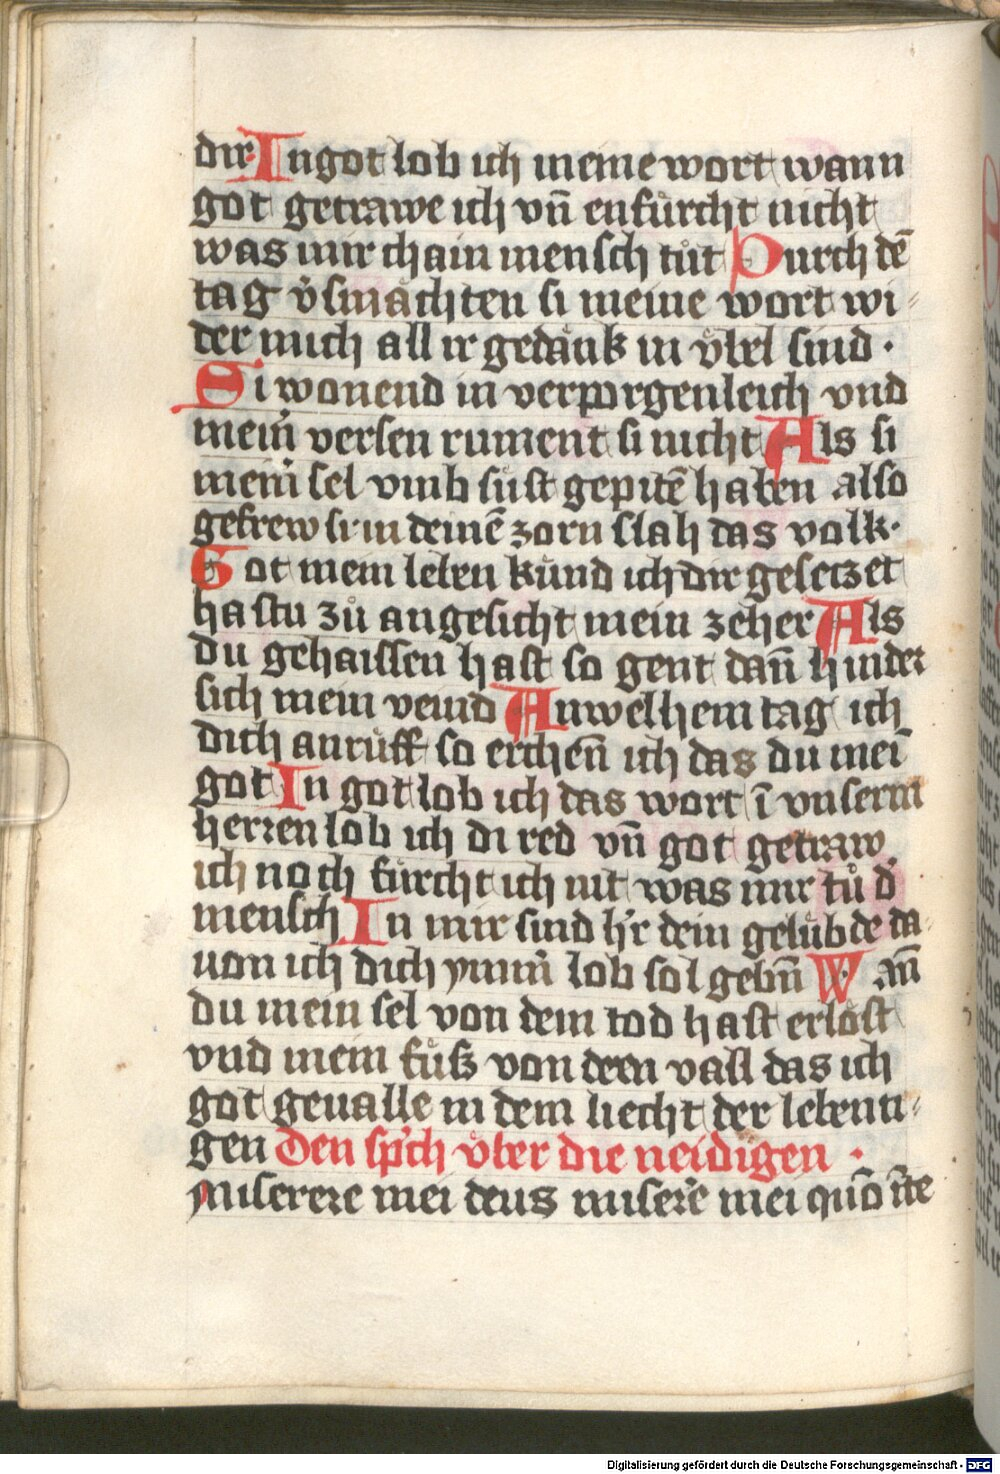 dir In got lob ich meine wort wann
got getrawe ich vn̄ enfürcht nicht
was mir chain mensch tůt Durch dē
tag v̓smächten si meine wort wi-
der mich all ir gedänk in v̈bel sind ·
Si wonend in verporgenleich vnd
mein̄ versen rument si nicht Als si
mein̄ sel vmb süst gepitē haben also
gefrew si in deinē zorn slah das volk·
Got mein leben künd ich dir gesetzet
hastu zů angesicht mein zeher Als
du gehaissen hast so gent dan̄ hinder
sich mein veind An welhem tag ich
dich anrůff so erchen̄ ich das du mei̅
got In got lob ich das wort ī vnserm
herren lob ich di red vn̄ got getraw
ich noch fürcht ich nit was mir tů d̓
mensch In mir sind h̓r dein gelübde da-
uon ich dich ymm̄ lob sol gebn̄ Wan̄
du mein sel von dem tod hast erlöst
vnd mein füß von dem vall das ich
got geualle in dem liecht der lebenti-
gen Den sp̓ch v̈ber die neidigen ·
Miserere mei deus misere̅ mei quō īte
Digitalisierung gefördert durch die Deutsche Forschungsgemeinschaft - DFG